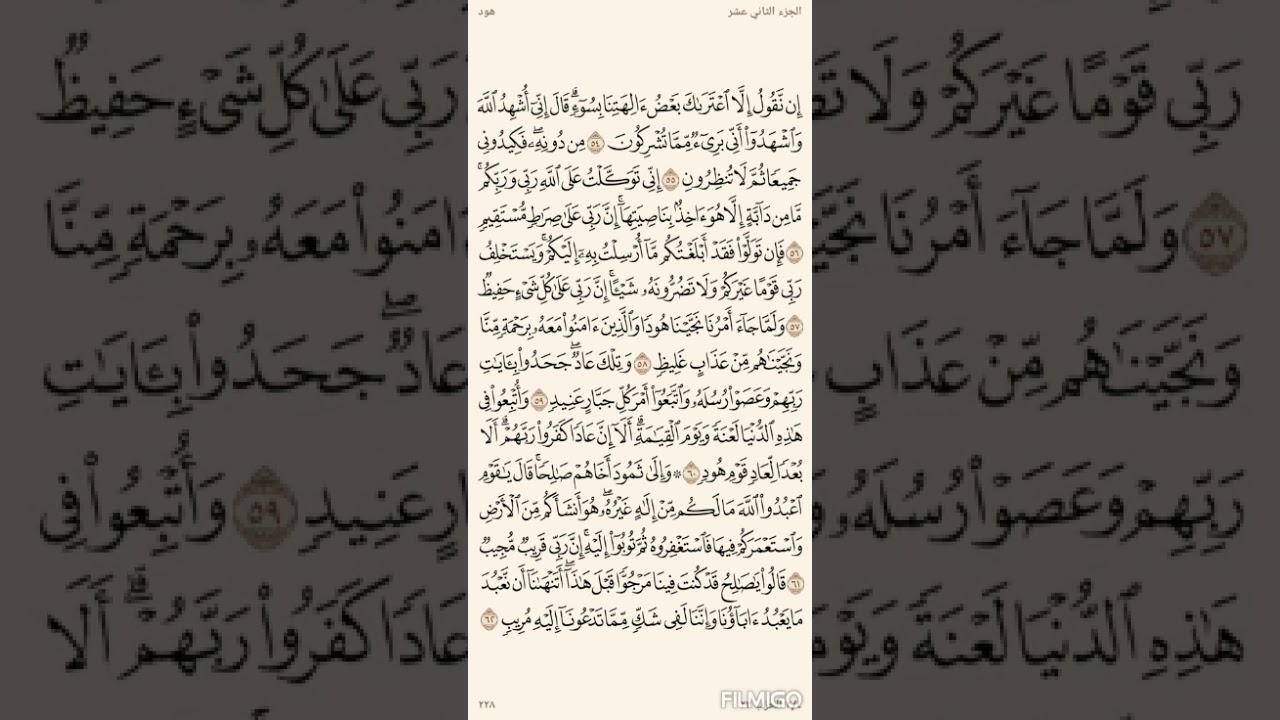 الجزء الثاني عشر
هود
إِن نَّقُولُ إِلَّا ٱعْتَرَىٰكَ بَعْضُ ءَالِهَتِنَا بِسُوٓءٍۗ قَالَ إِنِّىٓ أُشْهِدُ ٱللَّهَ
وَٱشْهَدُوٓا۟ أَنِّى بَرِىٓءٌ مِّمَّا تُشْرِكُونَ ٥٤ مِن دُونِهِۦۖ فَكِيدُونِى
جَمِيعًا ثُمَّ لَا تُنظِرُونِ ٥٥ إِنِّى تَوَكَّلْتُ عَلَى ٱللَّهِ رَبِّى وَرَبِّكُمۚ
مَّا مِن دَآبَّةٍ إِلَّا هُوَ ءَاخِذٌۢ بِنَاصِيَتِهَآۚ إِنَّ رَبِّى عَلَىٰ صِرَٰطٍ مُّسْتَقِيمٍ
٥٦ فَإِن تَوَلَّوْا۟ فَقَدْ أَبْلَغْتُكُم مَّآ أُرْسِلْتُ بِهِۦٓ إِلَيْكُمْۚ وَيَسْتَخْلِفُ
رَبِّى قَوْمًا غَيْرَكُمْ وَلَا تَضُرُّونَهُۥ شَيْـًٔاۚ إِنَّ رَبِّى عَلَىٰ كُلِّ شَىْءٍ حَفِيظٌ
٥٧ وَلَمَّا جَآءَ أَمْرُنَا نَجَّيْنَا هُودًا وَٱلَّذِينَ ءَامَنُوا۟ مَعَهُۥ بِرَحْمَةٍ مِّنَّا
وَنَجَّيْنَٰهُم مِّنْ عَذَابٍ غَلِيظٍ ٥٨ وَتِلْكَ عَادٌۖ جَحَدُوا۟ بِـَٔايَٰتِ
رَبِّهِمْ وَعَصَوْا۟ رُسُلَهُۥ وَٱتَّبَعُوٓا۟ أَمْرَ كُلِّ جَبَّارٍ عَنِيدٍ ٥٩ وَأُتْبِعُوا۟ فِى
هَٰذِهِ ٱلدُّنْيَا لَعْنَةً وَيَوْمَ ٱلْقِيَٰمَةِۗ أَلَآ إِنَّ عَادًا كَفَرُوا۟ رَبَّهُمْۗ أَلَا
بُعْدًا لِّعَادٍ قَوْمِ هُودٍ ٦٠ ۞ وَإِلَىٰ ثَمُودَ أَخَاهُمْ صَٰلِحًاۚ قَالَ يَٰقَوْمِ
ٱعْبُدُوا۟ ٱللَّهَ مَا لَكُم مِّنْ إِلَٰهٍ غَيْرُهُۥۖ هُوَ أَنشَأَكُم مِّنَ ٱلْأَرْضِ
وَٱسْتَعْمَرَكُمْ فِيهَا فَٱسْتَغْفِرُوهُ ثُمَّ تُوبُوٓا۟ إِلَيْهِۚ إِنَّ رَبِّى قَرِيبٌ مُّجِيبٌ
٦١ قَالُوا۟ يَٰصَٰلِحُ قَدْ كُنتَ فِينَا مَرْجُوًّا قَبْلَ هَٰذَآۖ أَتَنْهَىٰنَآ أَن نَّعْبُدَ
مَا يَعْبُدُ ءَابَآؤُنَا وَإِنَّنَا لَفِى شَكٍّ مِّمَّا تَدْعُونَآ إِلَيْهِ مُرِيبٍ ٦٢
٢٢٨
FILMIGO